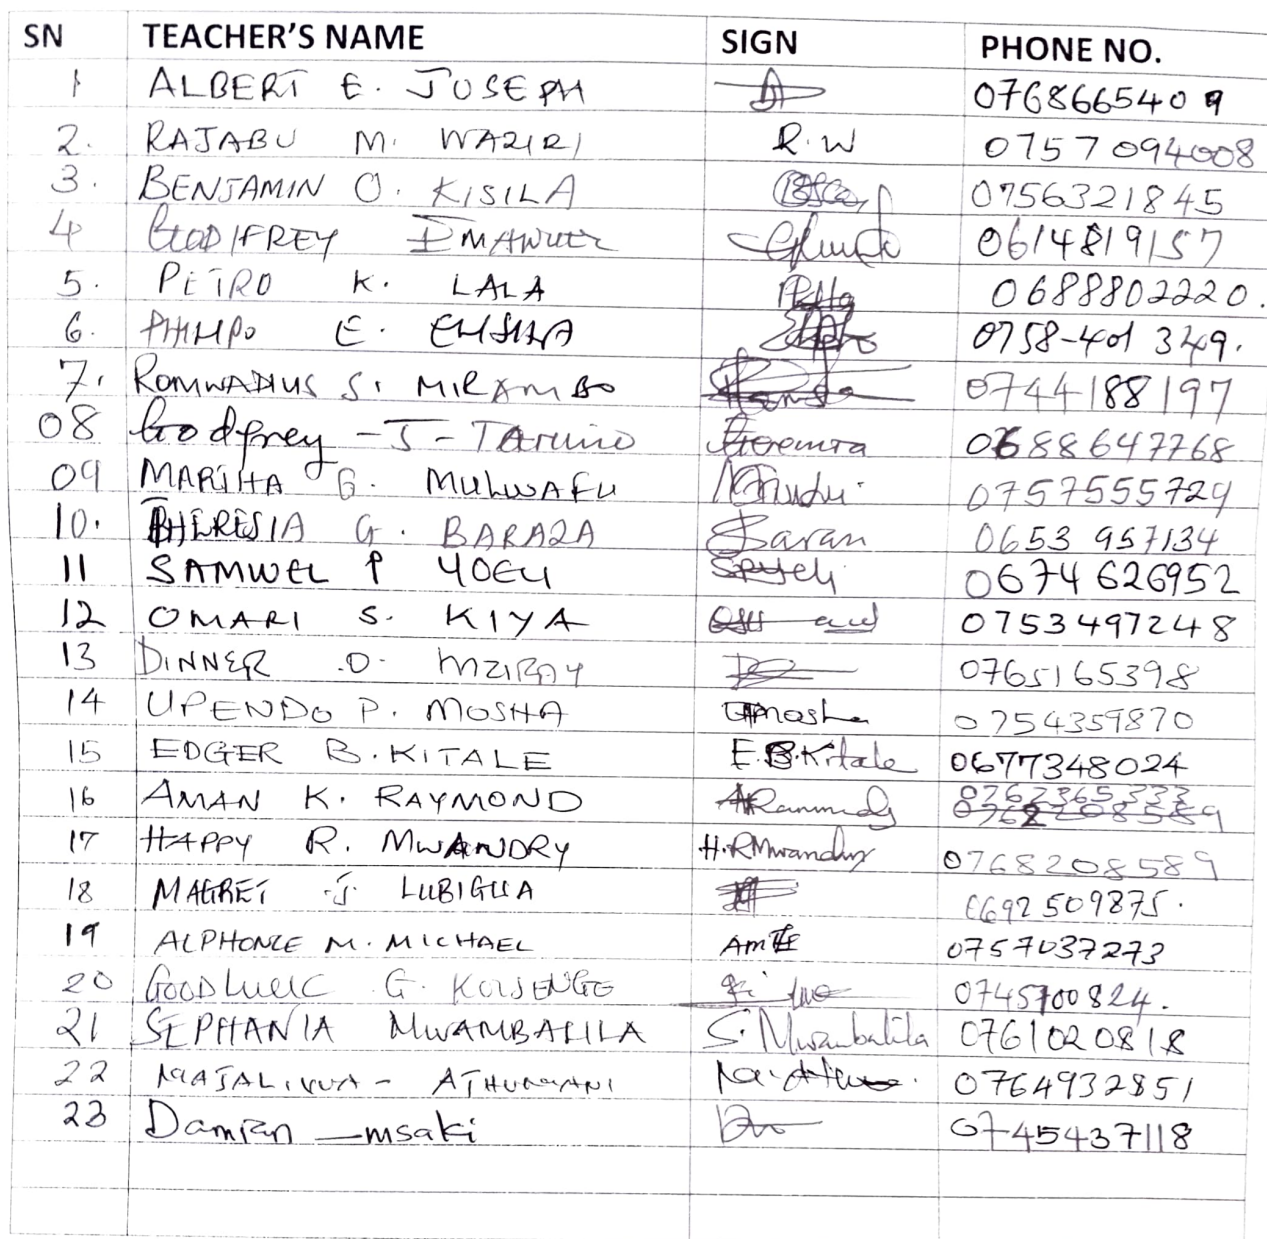 SN TEACHER'S NAME SIGN PHONE NO.
1 ALBERT E. JOSEPH 0768665409
2. RAJABU M. WAZIRI R.W 0757094008
3. BENJAMIN O. KISILA 0756321845
4 GODIFREY EMANUEL 0614819157
5. PETRO K. LALA 0688802220.
6. PHILIPO E. 0758-401 349.
7. ROMWADIUS S. MIRAMBO 0744188197
08 Godfrey -J- Tarimo 0688647768
09 MARTHA G. MULWAFU 0757555729
10. THERESIA G. BARAZA Baran 0653 957134
11 SAMWEL P YOELI 0674 626952
12 OMARI S. KIYA 0753497248
13 DINNER .O. MZIRAY 0765165398
14 UPENDO P. MOSHA UPmosha 0754359870
15 EDGER B. KITALE E.B.Kitale 0677348024
16 AMAN K. RAYMOND 0762365333
0768208589
17 HAPPY R. MWANDRY H.RMwandry 0768208589
18 MAGRET J LUBIGUA 0692509875.
19 ALPHONCE M. MICHAEL 0757037273
20 GOODLUCK G. 0745700824.
21 SEPHANIA MWAMBALILA S. Mwambalila 0761020818
22 MAJALIWA - ATHUMANI 0764932851
23 Damian - msaki 0745437118